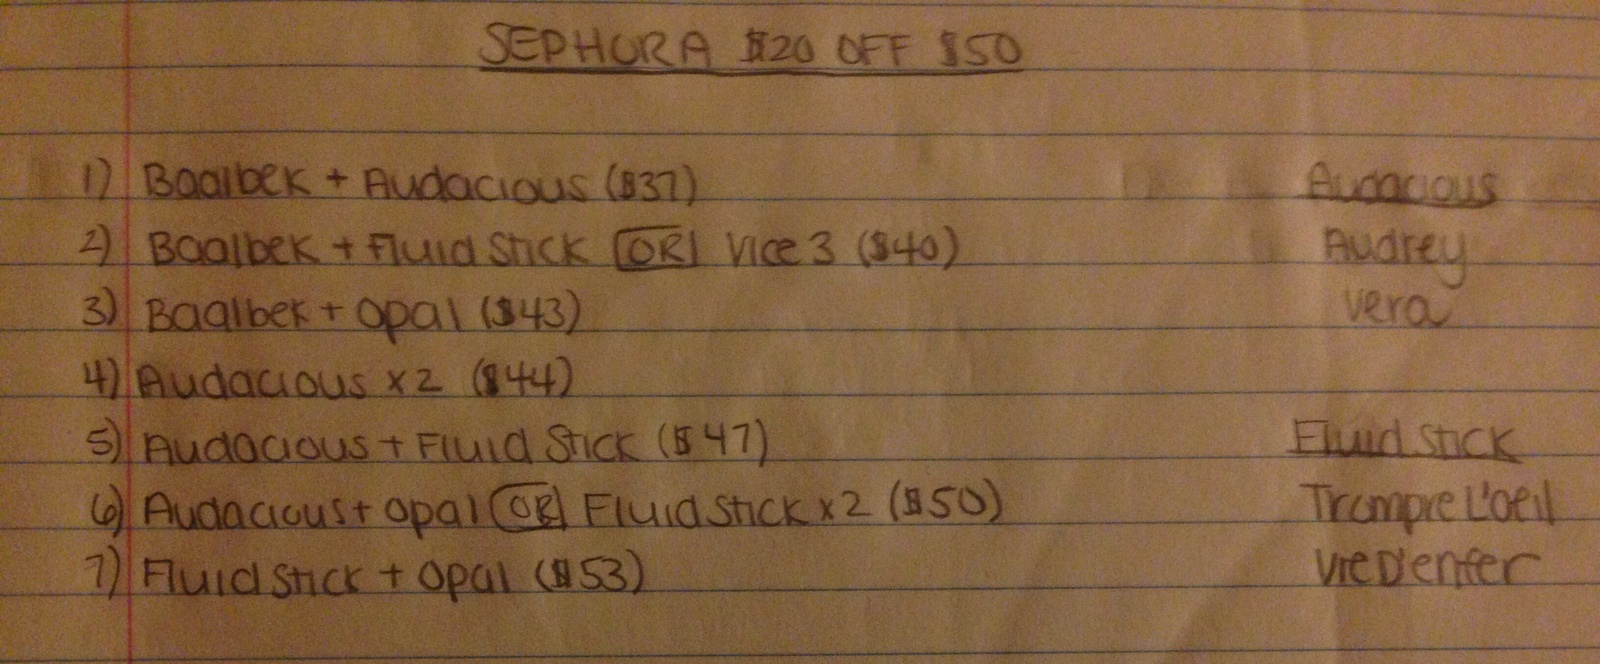 SEPHORA $20 OFF $50
1) Baalbek + Audacious ($37)
2) Baalbek + Fluid Stick OR Vice 3 ($40)
3) Baalbek + Opal ($43)
4) Audacious x2 ($44)
5) Audacious + Fluid Stick ($47)
6) Audacious + Opal OR Fluid Stick x2 ($50)
7) Fluid Stick + Opal ($53)
Audacious
Audrey
Vera
Fluid Stick
Trompre L'oeil
Vie D'enfer